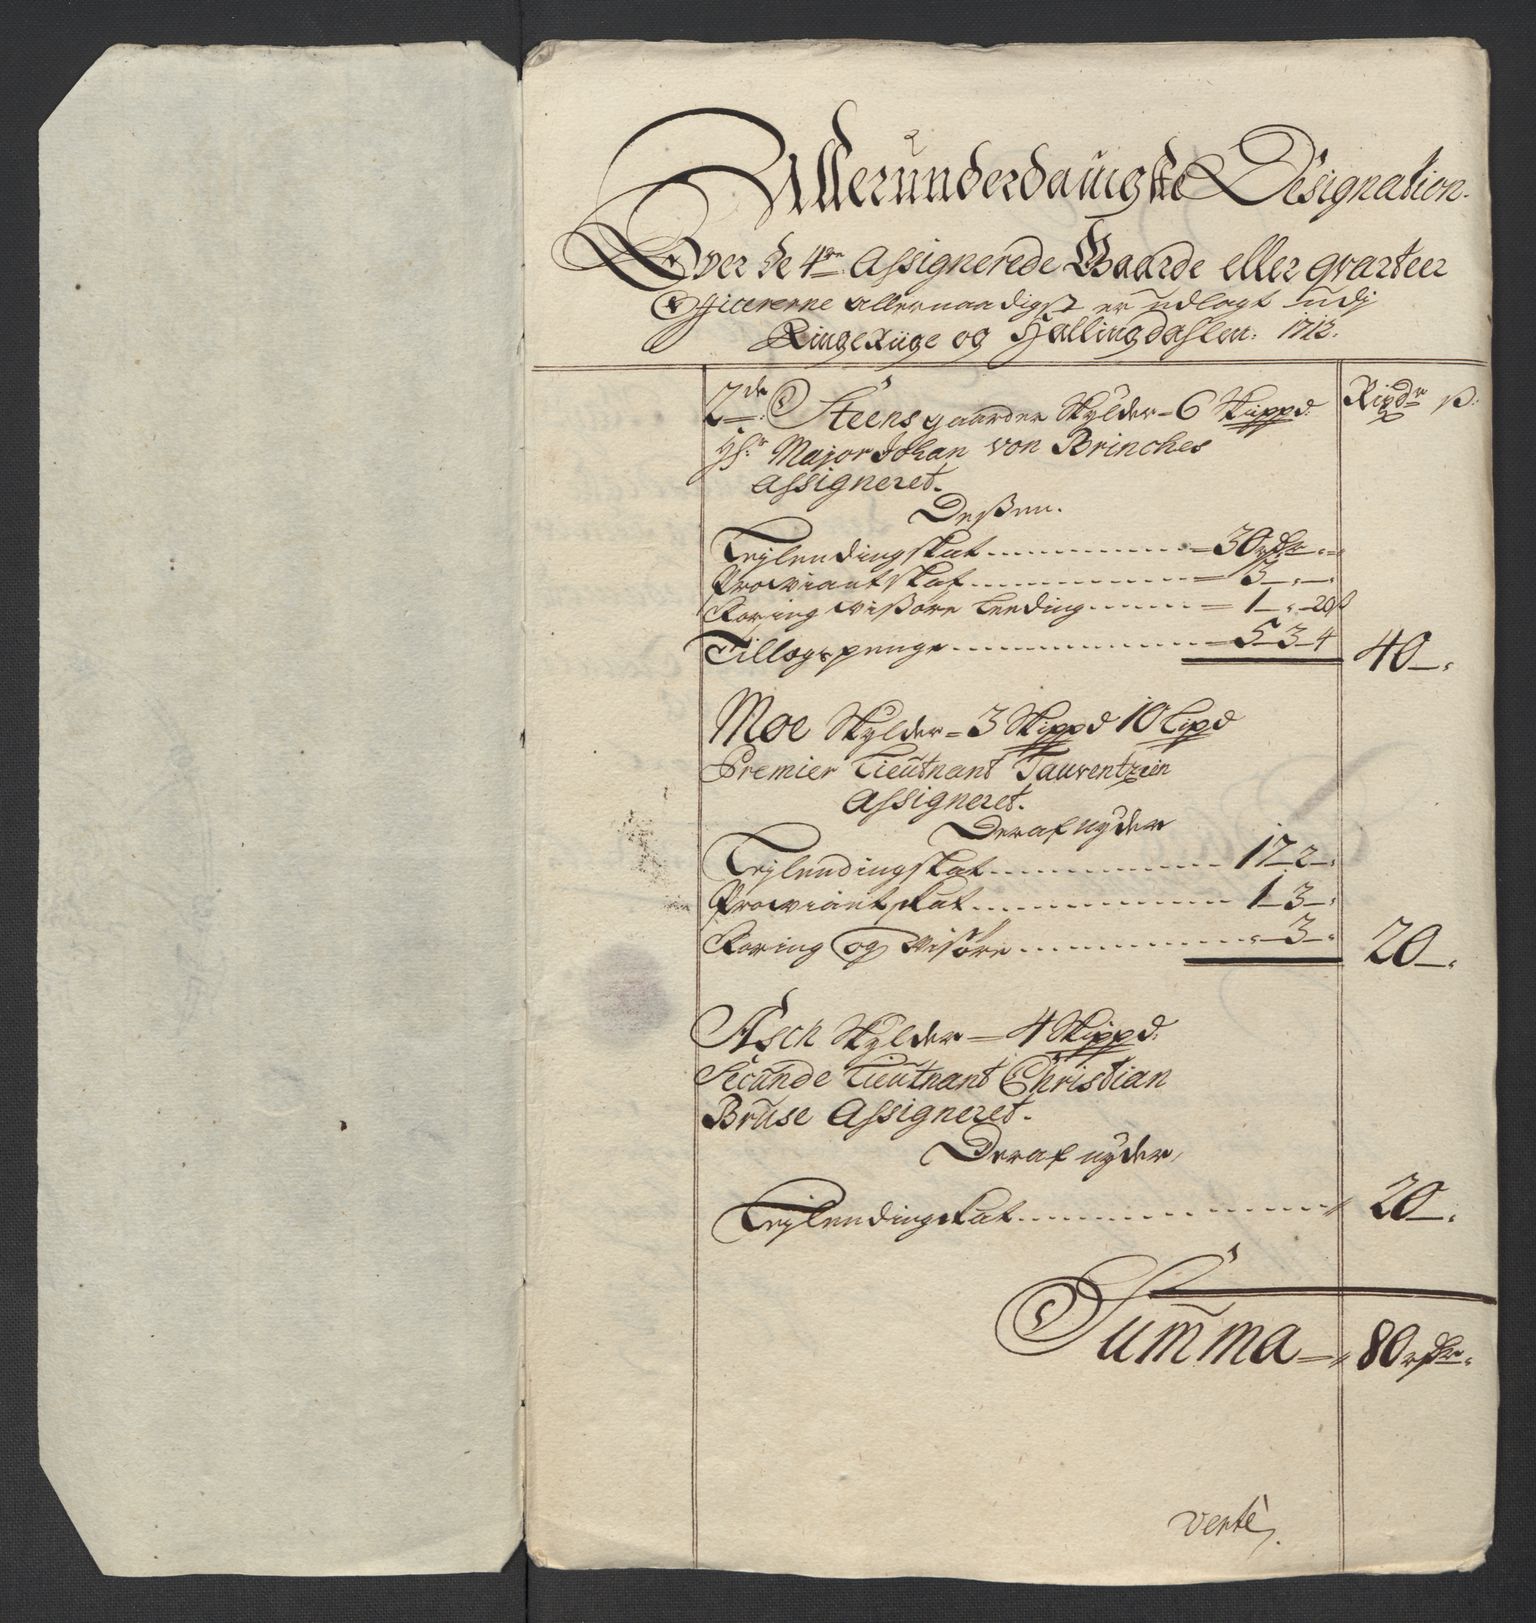 Allerunderdanigste Designation.
Over de 4re Assignerede Gaarde eller qvarteer
Officererne allernaadigst er udlagt udj
Ringeriige og Hallingdahlen: 1713.
Rixdr ß:
2de Steens gaarder Skylder = 6 Skippd:
Major Johan von Brinches
Assigneret.
Deßen.
Leylendingskat = 30 rdr
Proviantskat = 3
Foring Leeding = 1 - 20ß
Tillægspenge = 5 - 3 - 4 40
Moe Skylder = 3 Skippd 10 Lispd
Premier Lieutnant Tauventzein
Assigneret.
Deraf nyder
Leylendingskat 17 - 2
Proviantskat 1 - 3
Foring og Visøre 3 20
Asch Skylder = 4 Skippd:
Secunde Lieutnant Christian
Bruse Assigneret.
Deraf nyder,
Leylendingskat 20
Summa = 80 rdr
verte